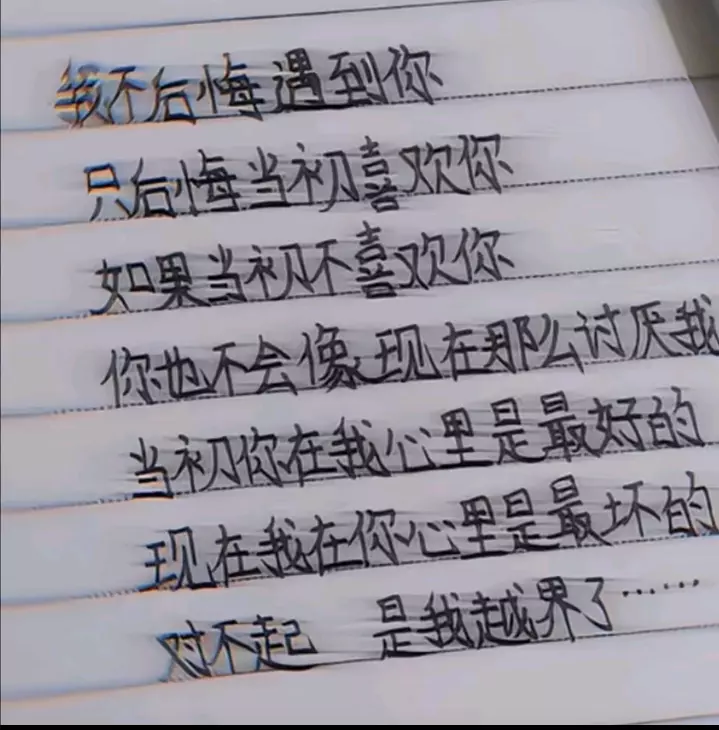 我不后悔遇到你
只后悔当初喜欢你
如果当初不喜欢你
你也不会像现在那么讨厌我
当初你在我心里是最好的
现在我在你心里是最坏的
对不起 是我越界了……